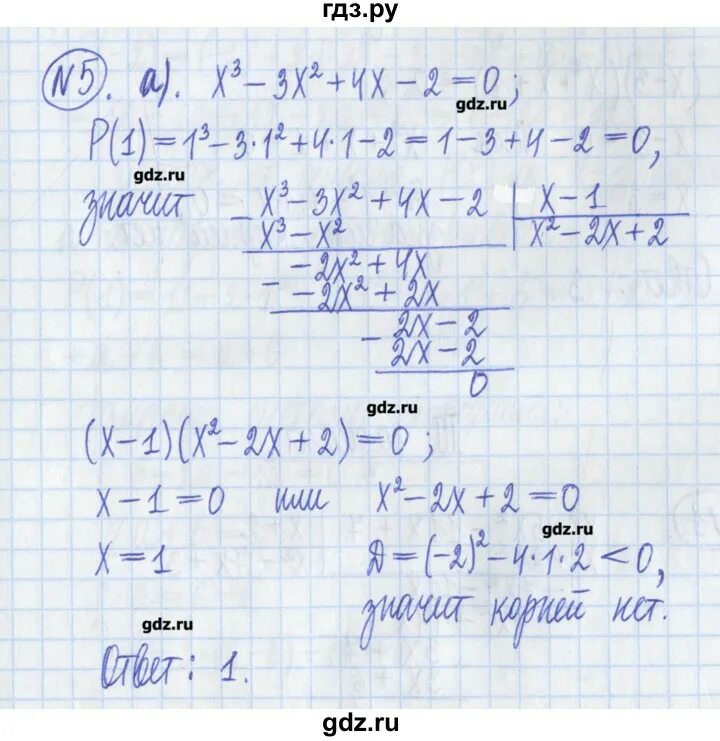 гдз.ру
№5. а). x³ – 3x² + 4x – 2 = 0;
gdz.ru
P(1) = 1³ – 3·1² + 4·1 – 2 = 1 – 3 + 4 – 2 = 0,
значит – x³ – 3x² + 4x – 2 | x – 1
x³ – x² | x² – 2x + 2
– –2x² + 4x
–2x² + 2x
– 2x – 2
2x – 2
0
gdz.ru
(x – 1)(x² – 2x + 2) = 0;
x – 1 = 0 или x² – 2x + 2 = 0
gdz.ru
x = 1 D = (–2)² – 4·1·2 < 0,
значит корней нет.
gdz.ru
Ответ: 1.
gdz.ru